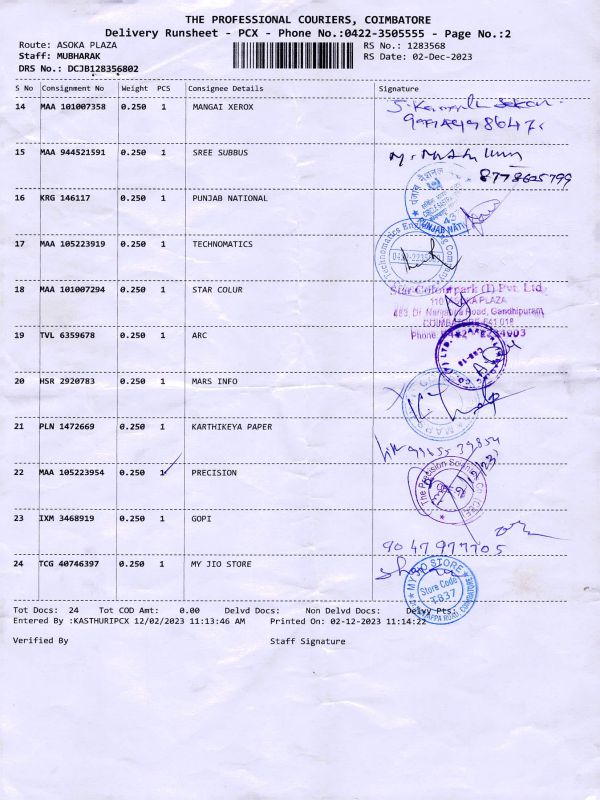 THE PROFESSIONAL COURIERS, COIMBATORE
Delivery Runsheet - PCX - Phone No.:0422-3505555 - Page No.:2
Route: ASOKA PLAZA RS No.: 1283568
Staff: MUBHARAK RS Date: 02-Dec-2023
DRS No.: DCJB128356802
S No Consignment No Weight PCS Consignee Details Signature
14 MAA 101007358 0.250 1 MANGAI XEROX
15 MAA 944521591 0.250 1 SREE SUBBUS
8778625799
16 KRG 146117 0.250 1 PUNJAB NATIONAL
17 MAA 105223919 0.250 1 TECHNOMATICS
18 MAA 101007294 0.250 1 STAR COLUR
Star Colourpark (I) Pvt. Ltd.
110, ASOKA PLAZA
Road, Gandhipuram,
COIMBATORE-641 018
19 TVL 6359678 0.250 1 ARC
20 HSR 2920783 0.250 1 MARS INFO
21 PLN 1472669 0.250 1 KARTHIKEYA PAPER
22 MAA 105223954 0.250 1 PRECISION
The Precision Scientific Co.
23 IXM 3468919 0.250 1 GOPI
9047977705
24 TCG 40746397 0.250 1 MY JIO STORE
MY JIO STORE
Store Code
T837
Tot Docs: 24 Tot COD Amt: 0.00 Delvd Docs: Non Delvd Docs: Delvy Pts:
Entered By :KASTHURIPCX 12/02/2023 11:13:46 AM Printed On: 02-12-2023 11:14:22
Verified By Staff Signature